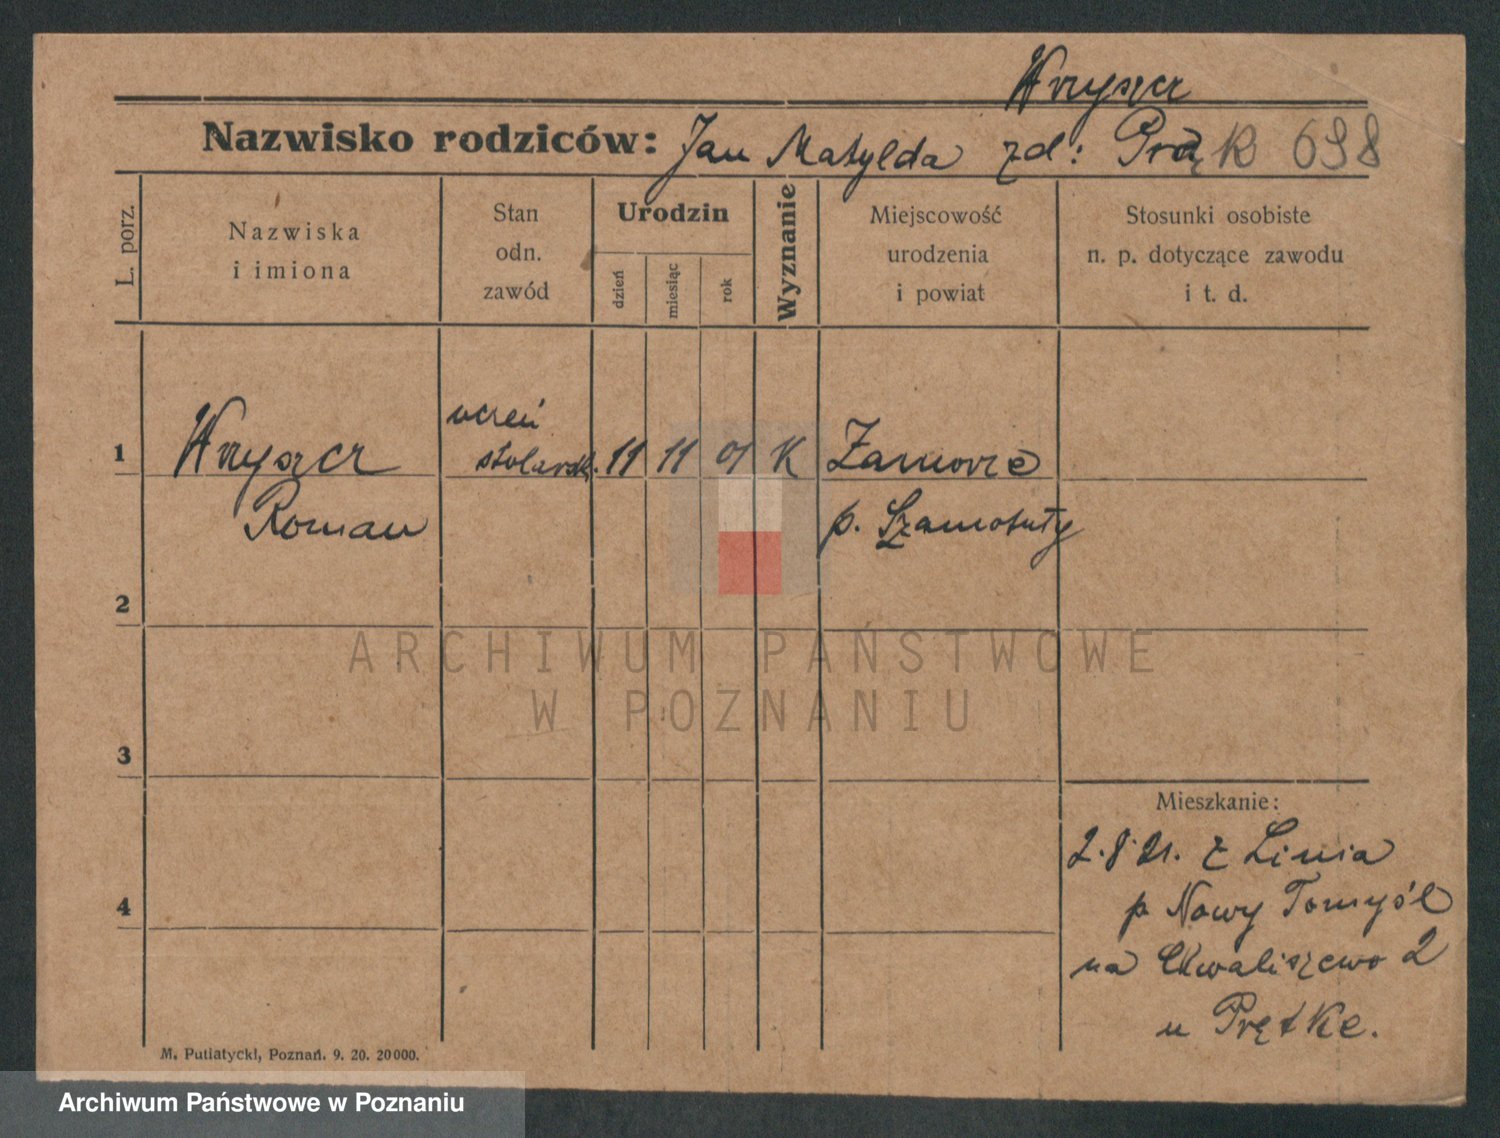 Wryszcz
Nazwisko rodziców: Jan Matylda zd: Prą K 698
L. porz.
Nazwiska
i imiona
Stan
odn.
zawód
Urodzin
dzień
miesiąc
rok
Wyznanie
Miejscowość
urodzenia
i powiat
Stosunki osobiste
n. p. dotyczące zawodu
i t. d.
1 Wryszcz uczeń stolarsk. 11 11 01 K Zamorze
Roman p. Szamotuły
2
3
4
Mieszkanie:
2.8 21. z Linia
p Nowy Tomyśl
na Chwaliszewo 2
u Prętke.
M. Putiatycki, Poznań. 9. 20. 20000.
ARCHIWUM PAŃSTWOWE
W POZNANIU
Archiwum Państwowe w Poznaniu